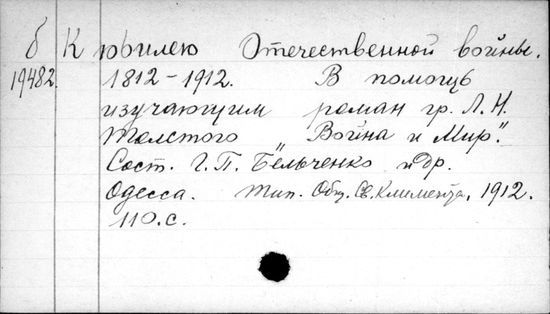 б К юбилею Отечественной войны.
19482. 1812-1912. В помощь
изучающим роман гр. Л. Н.
Толстого "Война и Мир".
Сост. Г. П. Бельченко и др.
Одесса. Тип. Общ. Св. Климента, 1912.
110.с.